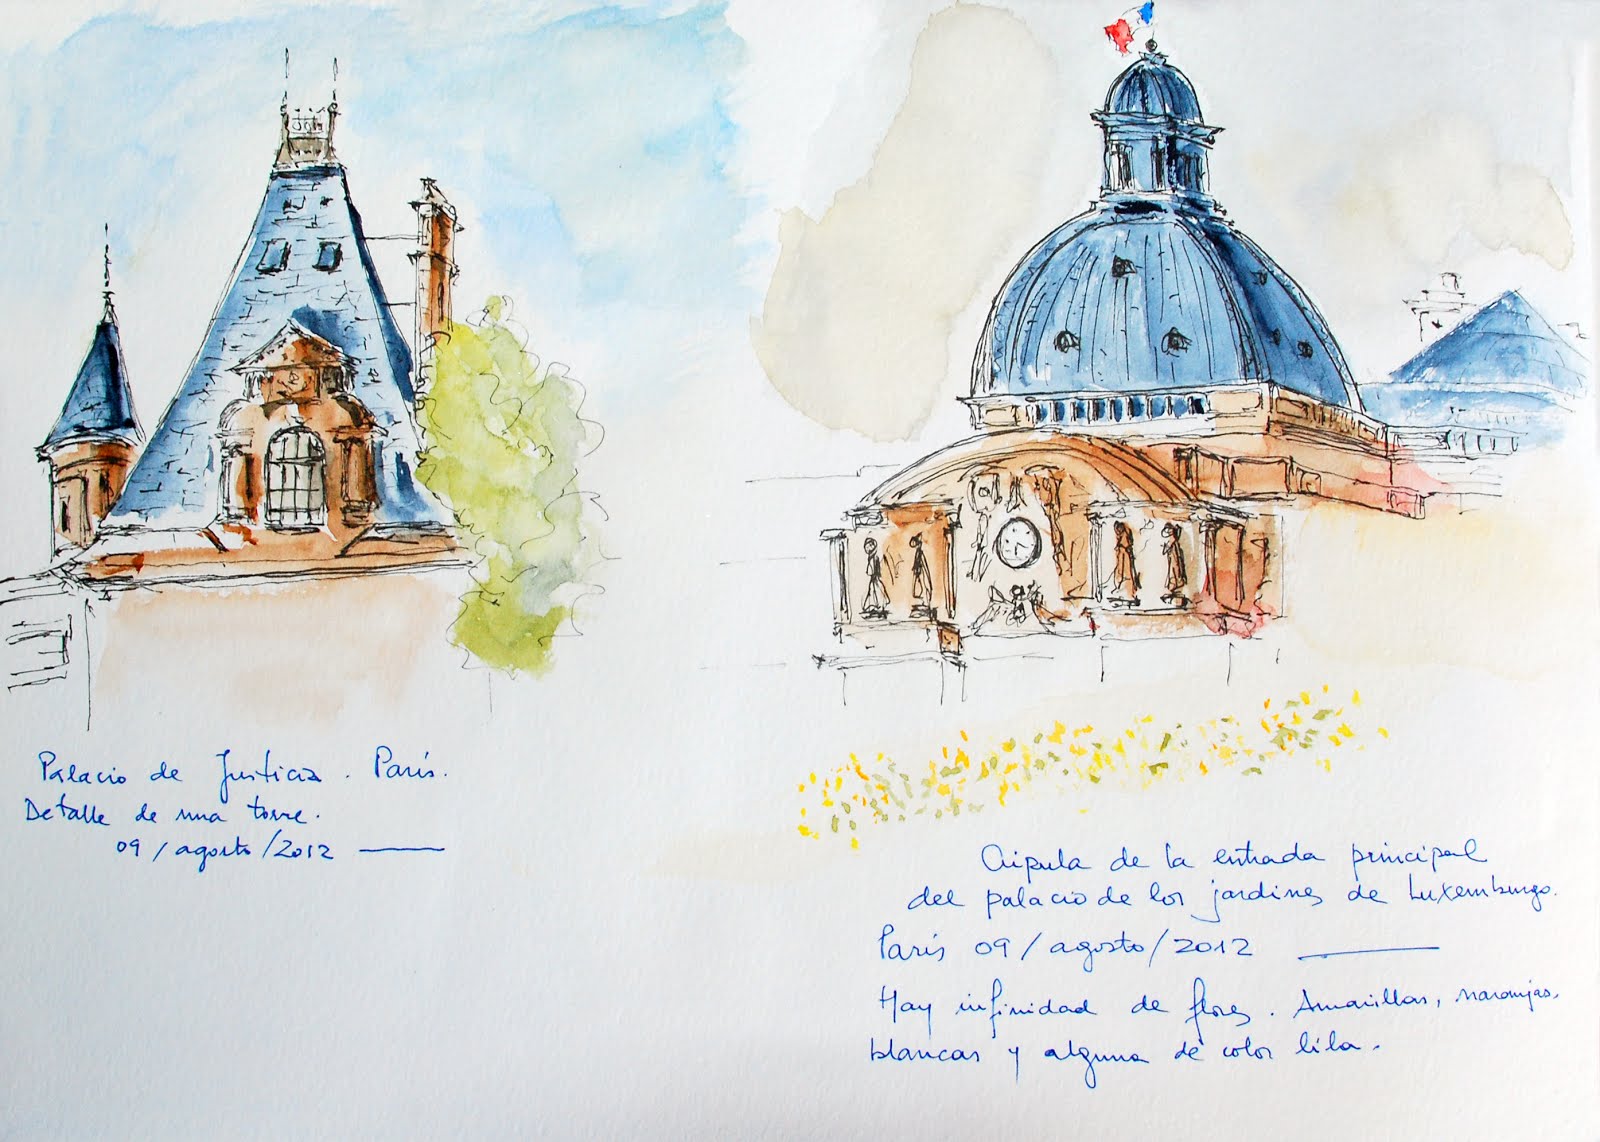 Palacio de Justicia. París.
Detalle de una torre.
09/agosto/2012
Cúpula de la entrada principal
del palacio de los jardines de Luxemburgo.
París 09/agosto/2012
Hay infinidad de flores. Amarillas, naranjas,
blancas y alguna de color lila.